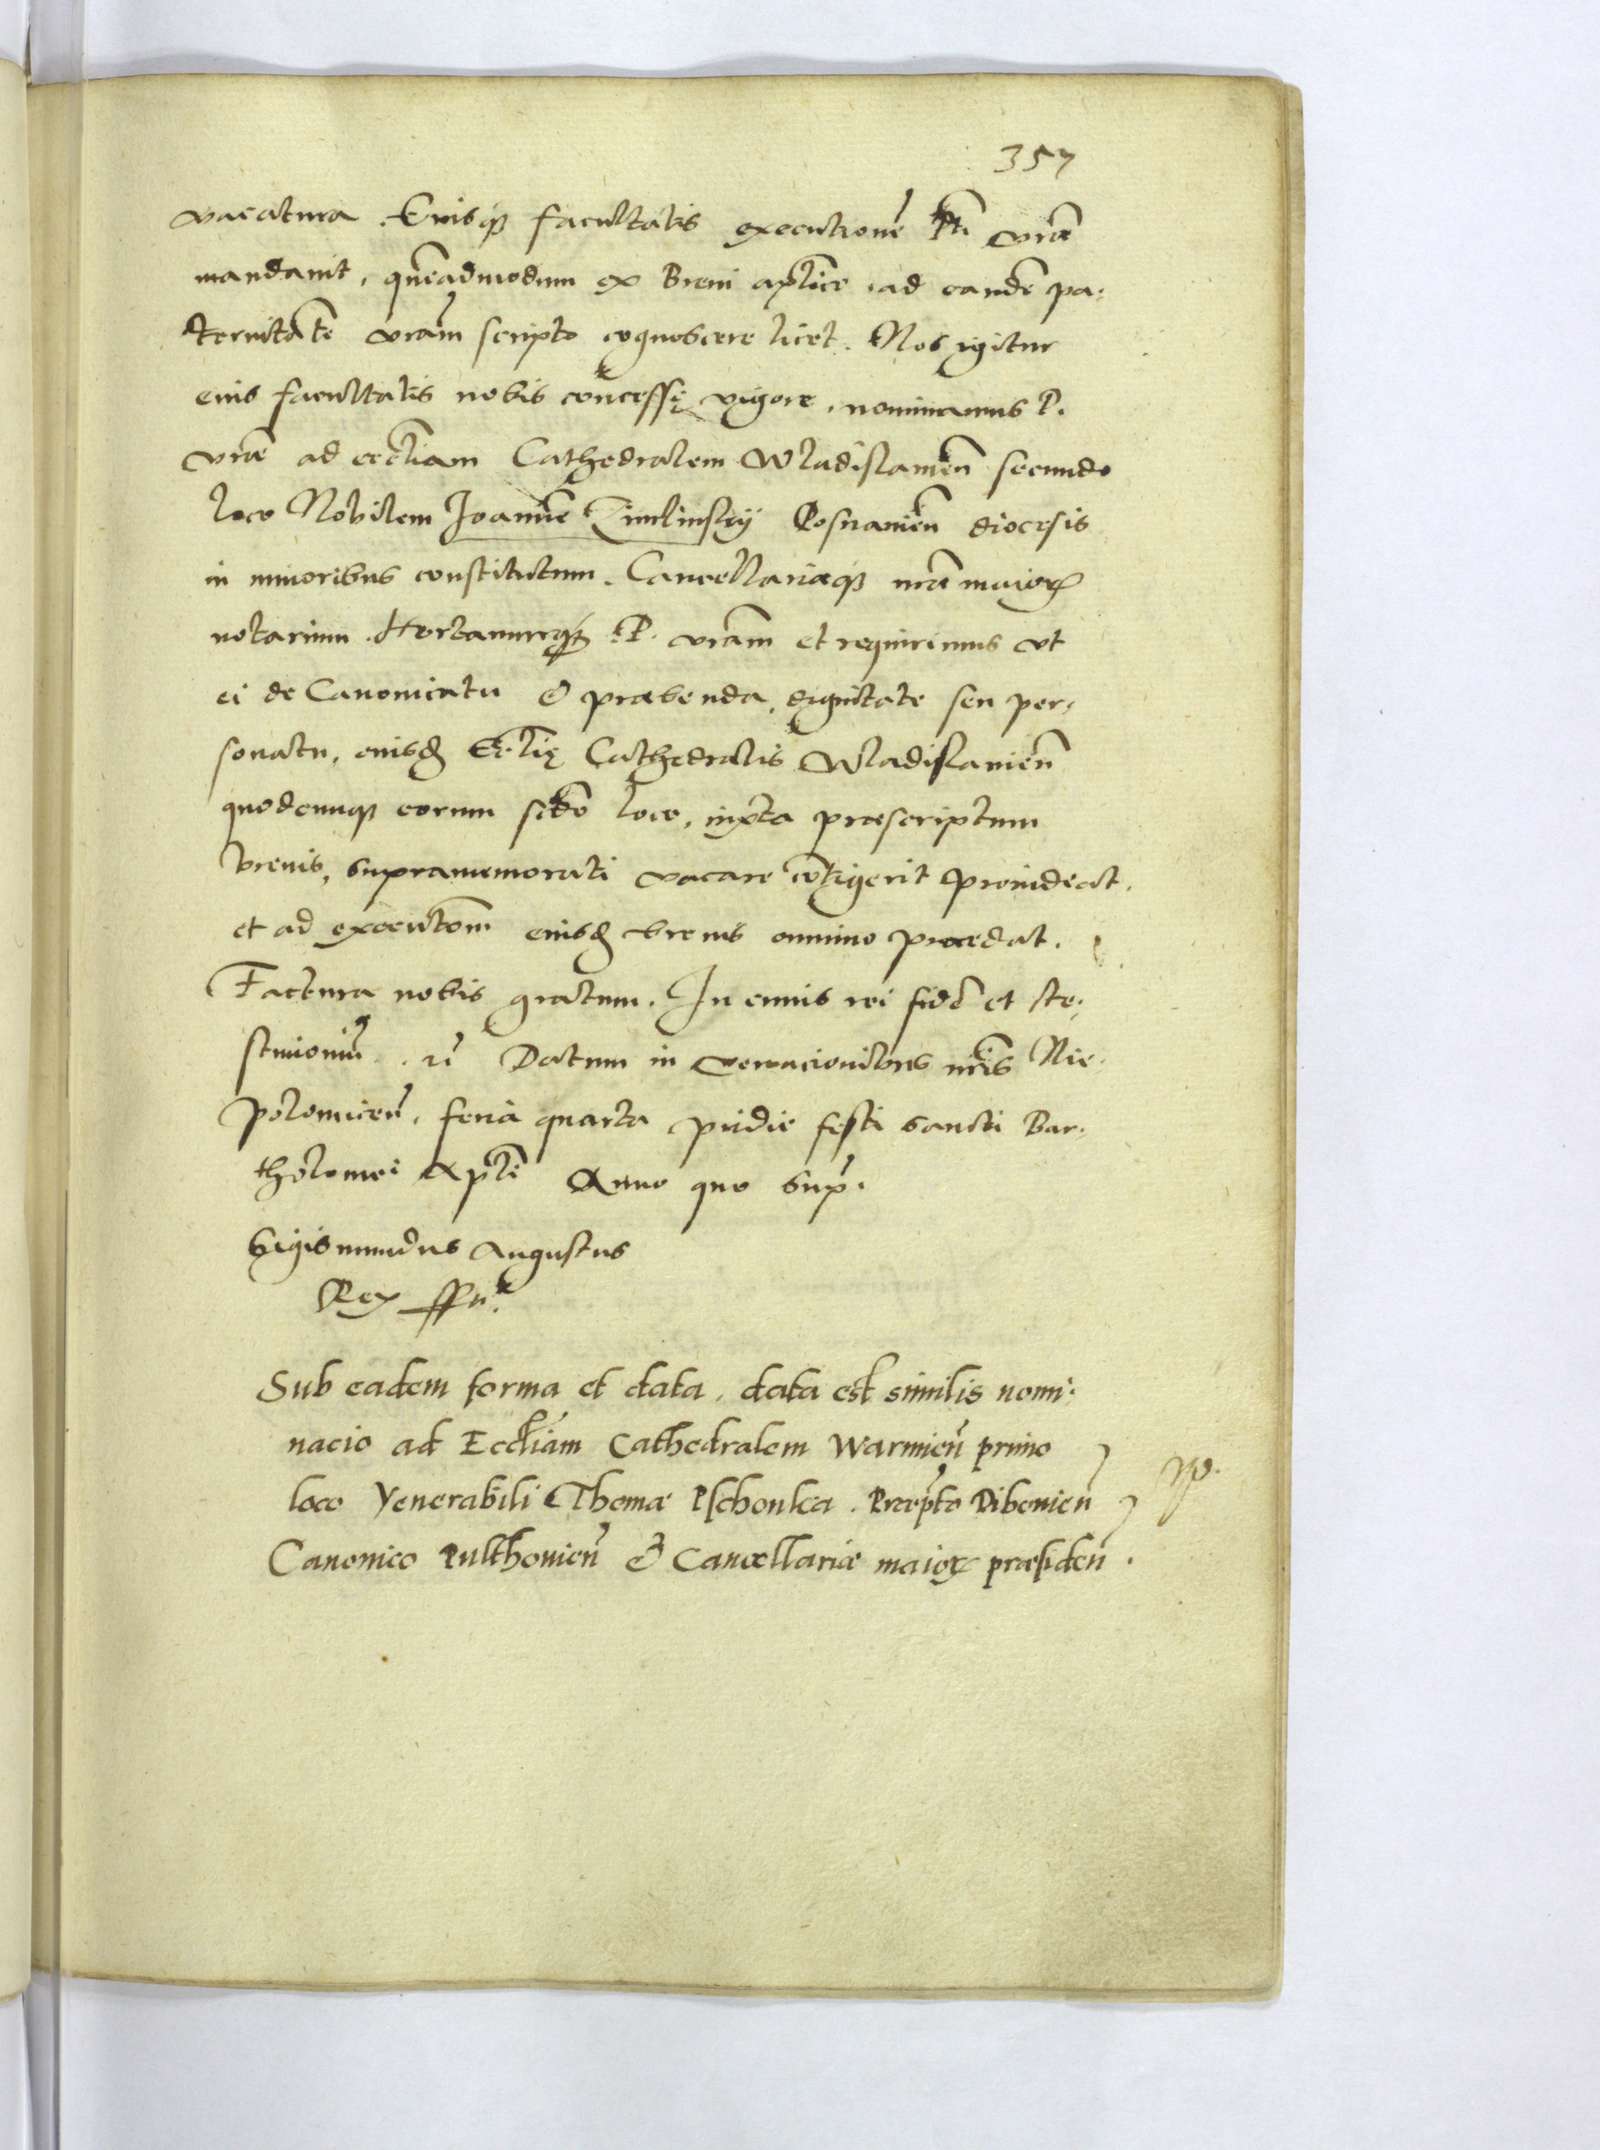 357
vacatura. Euisq3 facultatis executionē Pti vrae
mandauit, quēadmodum ex Breui aplico ad eandē pa-
ternitatē vram scripto cognoscere licet. Nos igitur
eius facultatis nobis concessę vigore, nominamus P.
vrae ad eccliam Cathedralem Wladislauien secundo
loco Nobilem Joannē Posnanien diocesis
in minoribus constitutum. Cancellariaeq3 nrae maioris
notarium. Hortamurq3 P. vram et requirimus vt
ei de Canonicatu & praebenda, dignitate seu per-
sonatu, eiusd Ecclię Cathedralis Wladislauien
quodcunq3 eorum scdo loco, iuxta praescriptum
breuis, supramemorati vacare cōtigerit prouideat,
et ad executom eiusd breuis omnino procedat.
Factura nobis gratum. In cuius rei fidē et te-
stimoniū. Datum in venacionibus nris Nie-
polomicen, feria quarta pridie festi sancti Bar-
tholomei Apli Anno quo sup.
Sigismundus Augustus
Rex sspt.
Sub eadem forma et data, data est similis nomi-
nacio ad Eccliam Cathedralem Warmien primo
loco Venerabili Thomae Plschonka. Praepto Dibouien
Canonico Pulthouien & Cancellariae maioris praesiden.